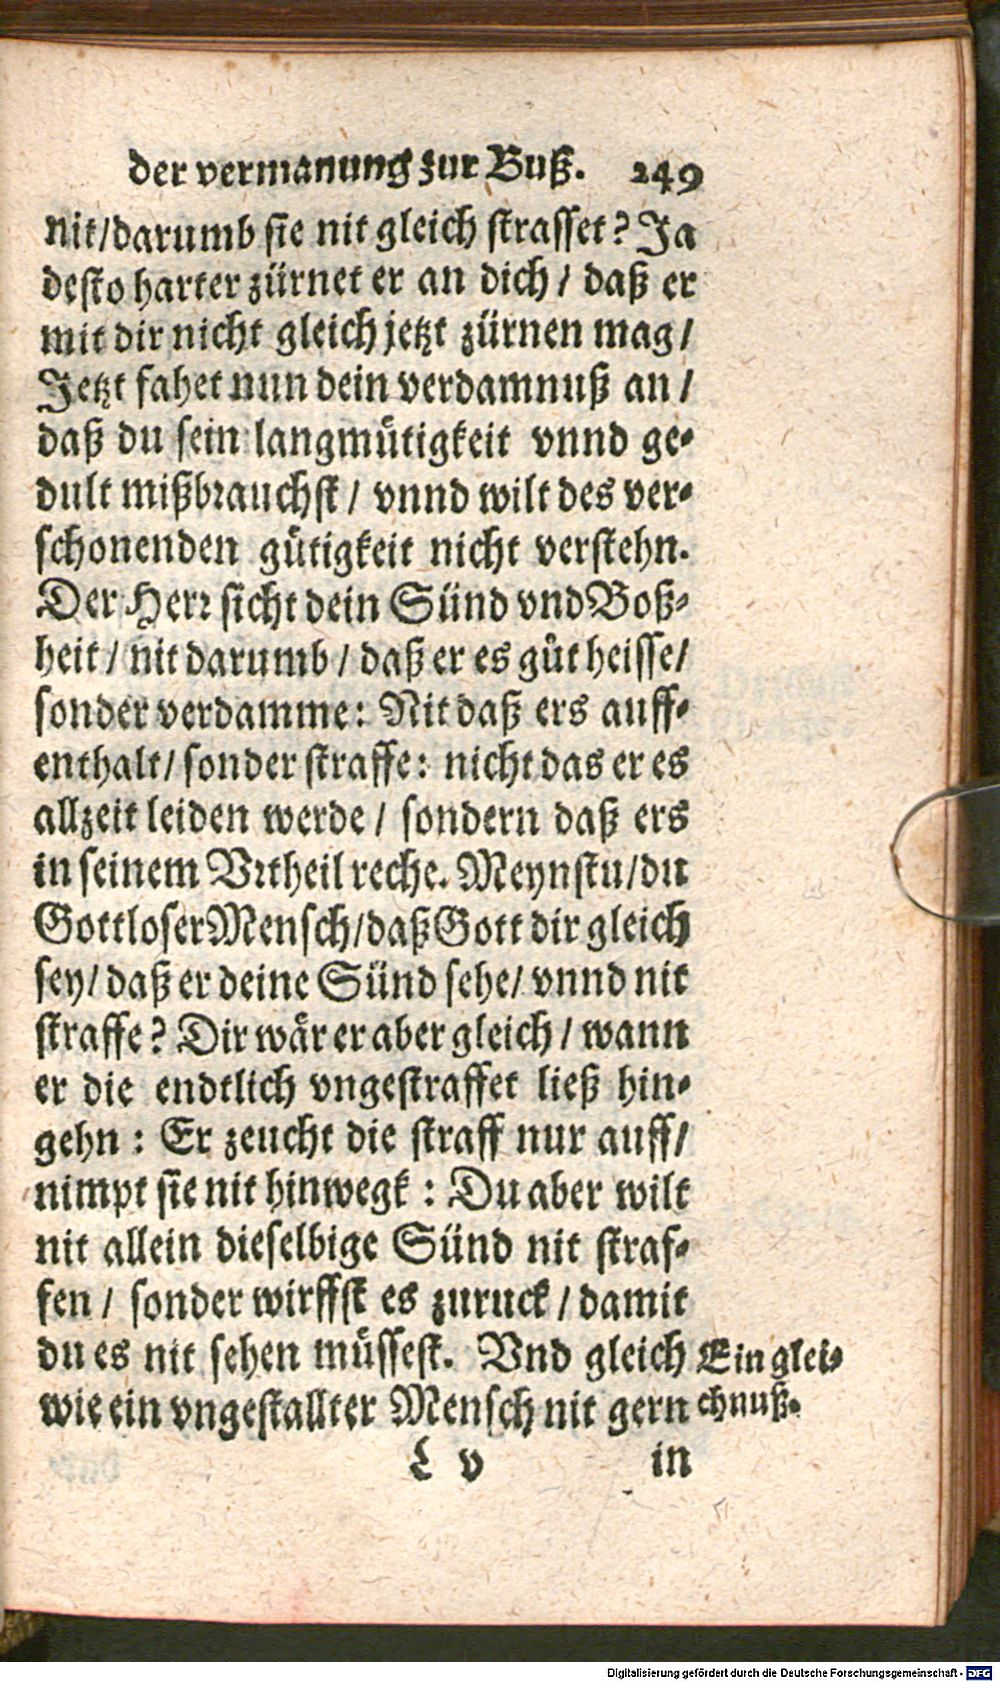 der vermanung zur Buß. 249
nit/darumb sie nit gleich straffet? Ja
desto harter zürnet er an dich / daß er
mit dir nicht gleich jetzt zürnen mag /
Jetzt fahet nun dein verdamnuß an /
daß du sein langmütigkeit vnnd ge-
dult mißbrauchst / vnnd wilt des ver-
schonenden gütigkeit nicht verstehn.
Der Herr sicht dein Sünd vnd Boß-
heit / nit darumb / daß er es gůt heisse /
sonder verdamme: Nit daß ers auff-
enthalt / sonder straffe: nicht das er es
allzeit leiden werde / sondern daß ers
in seinem Vrtheil reche. Meynstu/du
Gottloser Mensch/daß Gott dir gleich
sey/ daß er deine Sünd sehe/ vnnd nit
straffe? Dir wår er aber gleich / wann
er die endtlich vngestraffet ließ hin-
gehn : Er zeucht die straff nur auff/
nimpt sie nit hinwegk : Du aber wilt
nit allein dieselbige Sünd nit straf-
fen / sonder wirffst es zuruck / damit
du es nit sehen müssest. Vnd gleich
wie ein vngestallter Mensch nit gern
Ein glei-
chnuß.
L v in
Digitalisierung gefördert durch die Deutsche Forschungsgemeinschaft - DFG